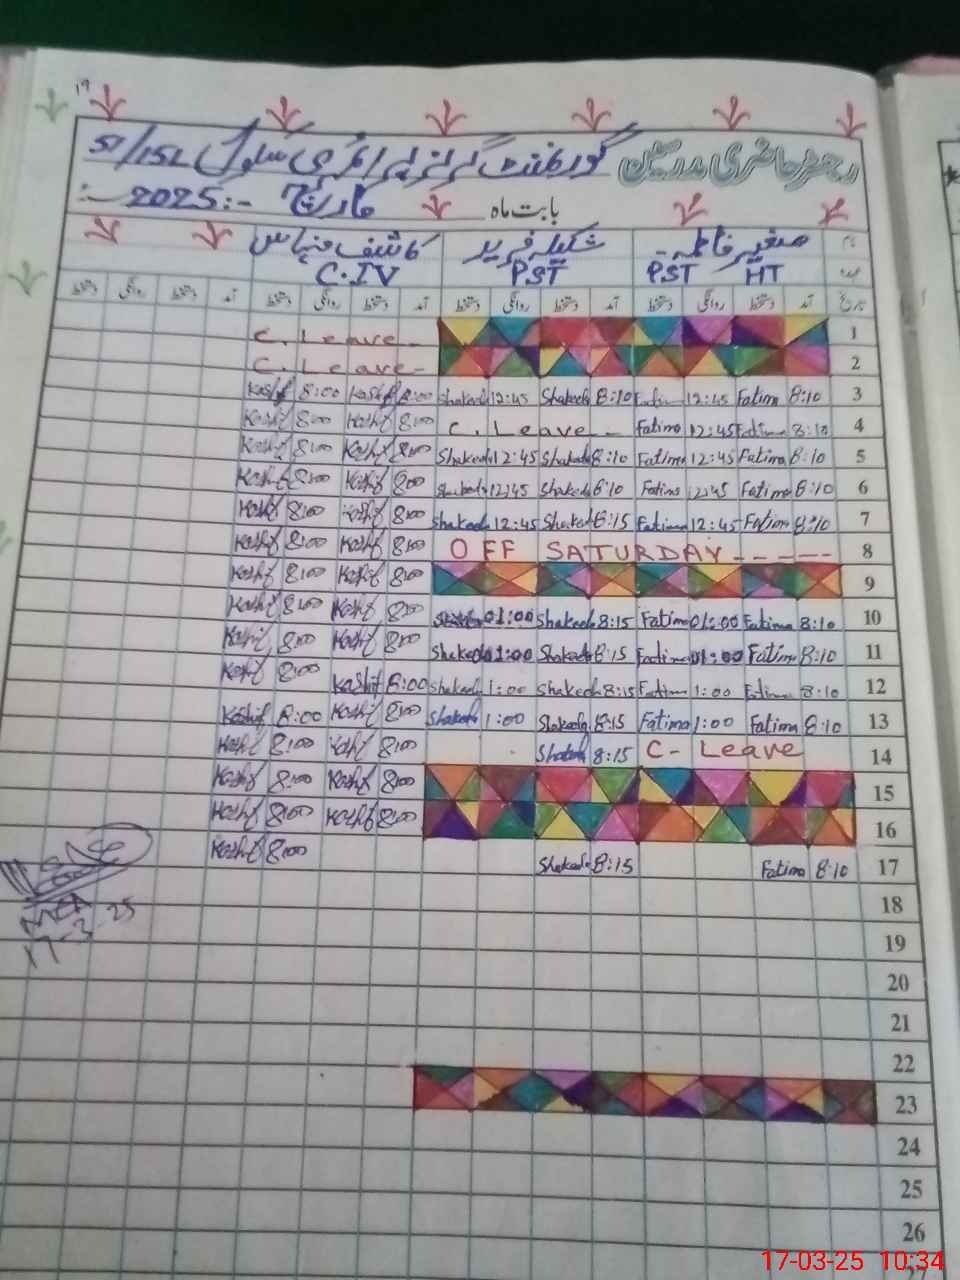 19
رجسٹر حاضری مدرسین گورنمنٹ گرلز پرائمری سکول 50/15L
بابت ماہ مارچ 2025:-
نام صغیر فاطمہ شکیلہ فرید کاشف منہاس
PST HT PST C.IV
تاریخ آمد دستخط روانگی دستخط آمد دستخط روانگی دستخط آمد دستخط روانگی دستخط آمد دستخط روانگی دستخط
C. Leave - 1
C. Leave - 2
Kashif 8:00 Kashif 8:00 Shakeela 12:45 Shakeela 8:10 Fatima 12:45 Fatima 8:10 3
Kashif 8:00 Kashif 8:00 C. Leave - Fatima 12:45 Fatima 8:10 4
Kashif 8:00 Kashif 8:00 Shakeela 12:45 Shakeela 8:10 Fatima 12:45 Fatima 8:10 5
Kashif 8:00 Kashif 8:00 Shakeela 12:45 Shakeela 8:10 Fatima 12:45 Fatima 8:10 6
Kashif 8:00 Kashif 8:00 Shakeela 12:45 Shakeela 8:15 Fatima 12:45 Fatima 8:10 7
Kashif 8:00 Kashif 8:00 OFF SATURDAY - - - - - 8
Kashif 8:00 Kashif 8:00 9
Kashif 8:00 Kashif 8:00 01:00 Shakeela 8:15 Fatima 01:00 Fatima 8:10 10
Kashif 8:00 Kashif 8:00 Shakeela 01:00 Shakeela 8:15 Fatima 01:00 Fatima 8:10 11
Kashif 8:00 Kashif 8:00 Shakeela 1:00 Shakeela 8:15 Fatima 1:00 Fatima 8:10 12
Kashif 8:00 Kashif 8:00 Shakeela 1:00 Shakeela 8:15 Fatima 1:00 Fatima 8:10 13
Kashif 8:00 Kashif 8:00 Shakeela 8:15 C- Leave 14
Kashif 8:00 Kashif 8:00 15
Kashif 8:00 Kashif 8:00 16
Kashif 8:00 Shakeela 8:15 Fatima 8:10 17
MEA
17-3-25
18
19
20
21
22
23
24
25
26
27
17-03-25 10:34